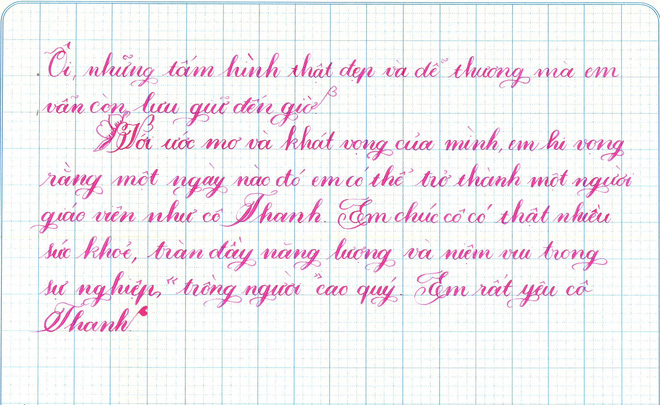 Ôi, những tấm hình thật đẹp và dễ thương mà em
vẫn còn lưu giữ đến giờ.
Với ước mơ và khát vọng của mình, em hi vọng
rằng một ngày nào đó em có thể trở thành một người
giáo viên như cô Thanh. Em chúc cô có thật nhiều
sức khoẻ, tràn đầy năng lượng và niềm vui trong
sự nghiệp "trồng người" cao quý. Em rất yêu cô
Thanh